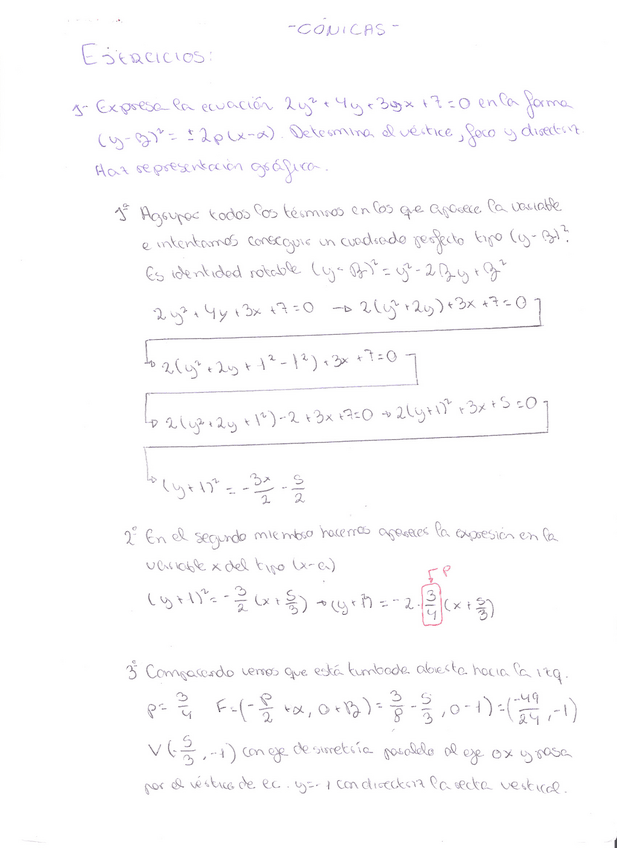 -CÓNICAS-
EJERCICIOS:
1- Expresa la ecuación 2y² + 4y + 3x + 7 = 0 en la forma
(y-β)² = ± 2p(x-α). Determina el vértice, foco y directriz.
Haz representación gráfica.
1º Agrupar todos los términos en los que aparece la variable
e intentamos conseguir un cuadrado perfecto tipo (y-β)².
Es identidad notable (y-β)² = y² - 2βy + β²
2y² + 4y + 3x + 7 = 0 → 2(y² + 2y) + 3x + 7 = 0
→ 2(y² + 2y + 1² - 1²) + 3x + 7 = 0
→ 2(y² + 2y + 1²) - 2 + 3x + 7 = 0 → 2(y+1)² + 3x + 5 = 0
→ (y+1)² = - 3x/2 - 5/2
2º En el segundo miembro hacemos aparecer la expresión en la
variable x del tipo (x-α)
p
(y+1)² = - 3/2 (x + 5/3) → (y+1²) = -2 · 3/4 (x + 5/3)
3º Comparando vemos que está tumbada abierta hacia la izq.
p = 3/4 F = (- p/2 + α, 0 + β) = 3/8 - 5/3, 0 - 1) = (-49/24, -1)
V(- 5/3, -1) con eje de simetría paralelo al eje ox y pasa
por el vértice de ec. y = -1 con directriz la recta vertical.